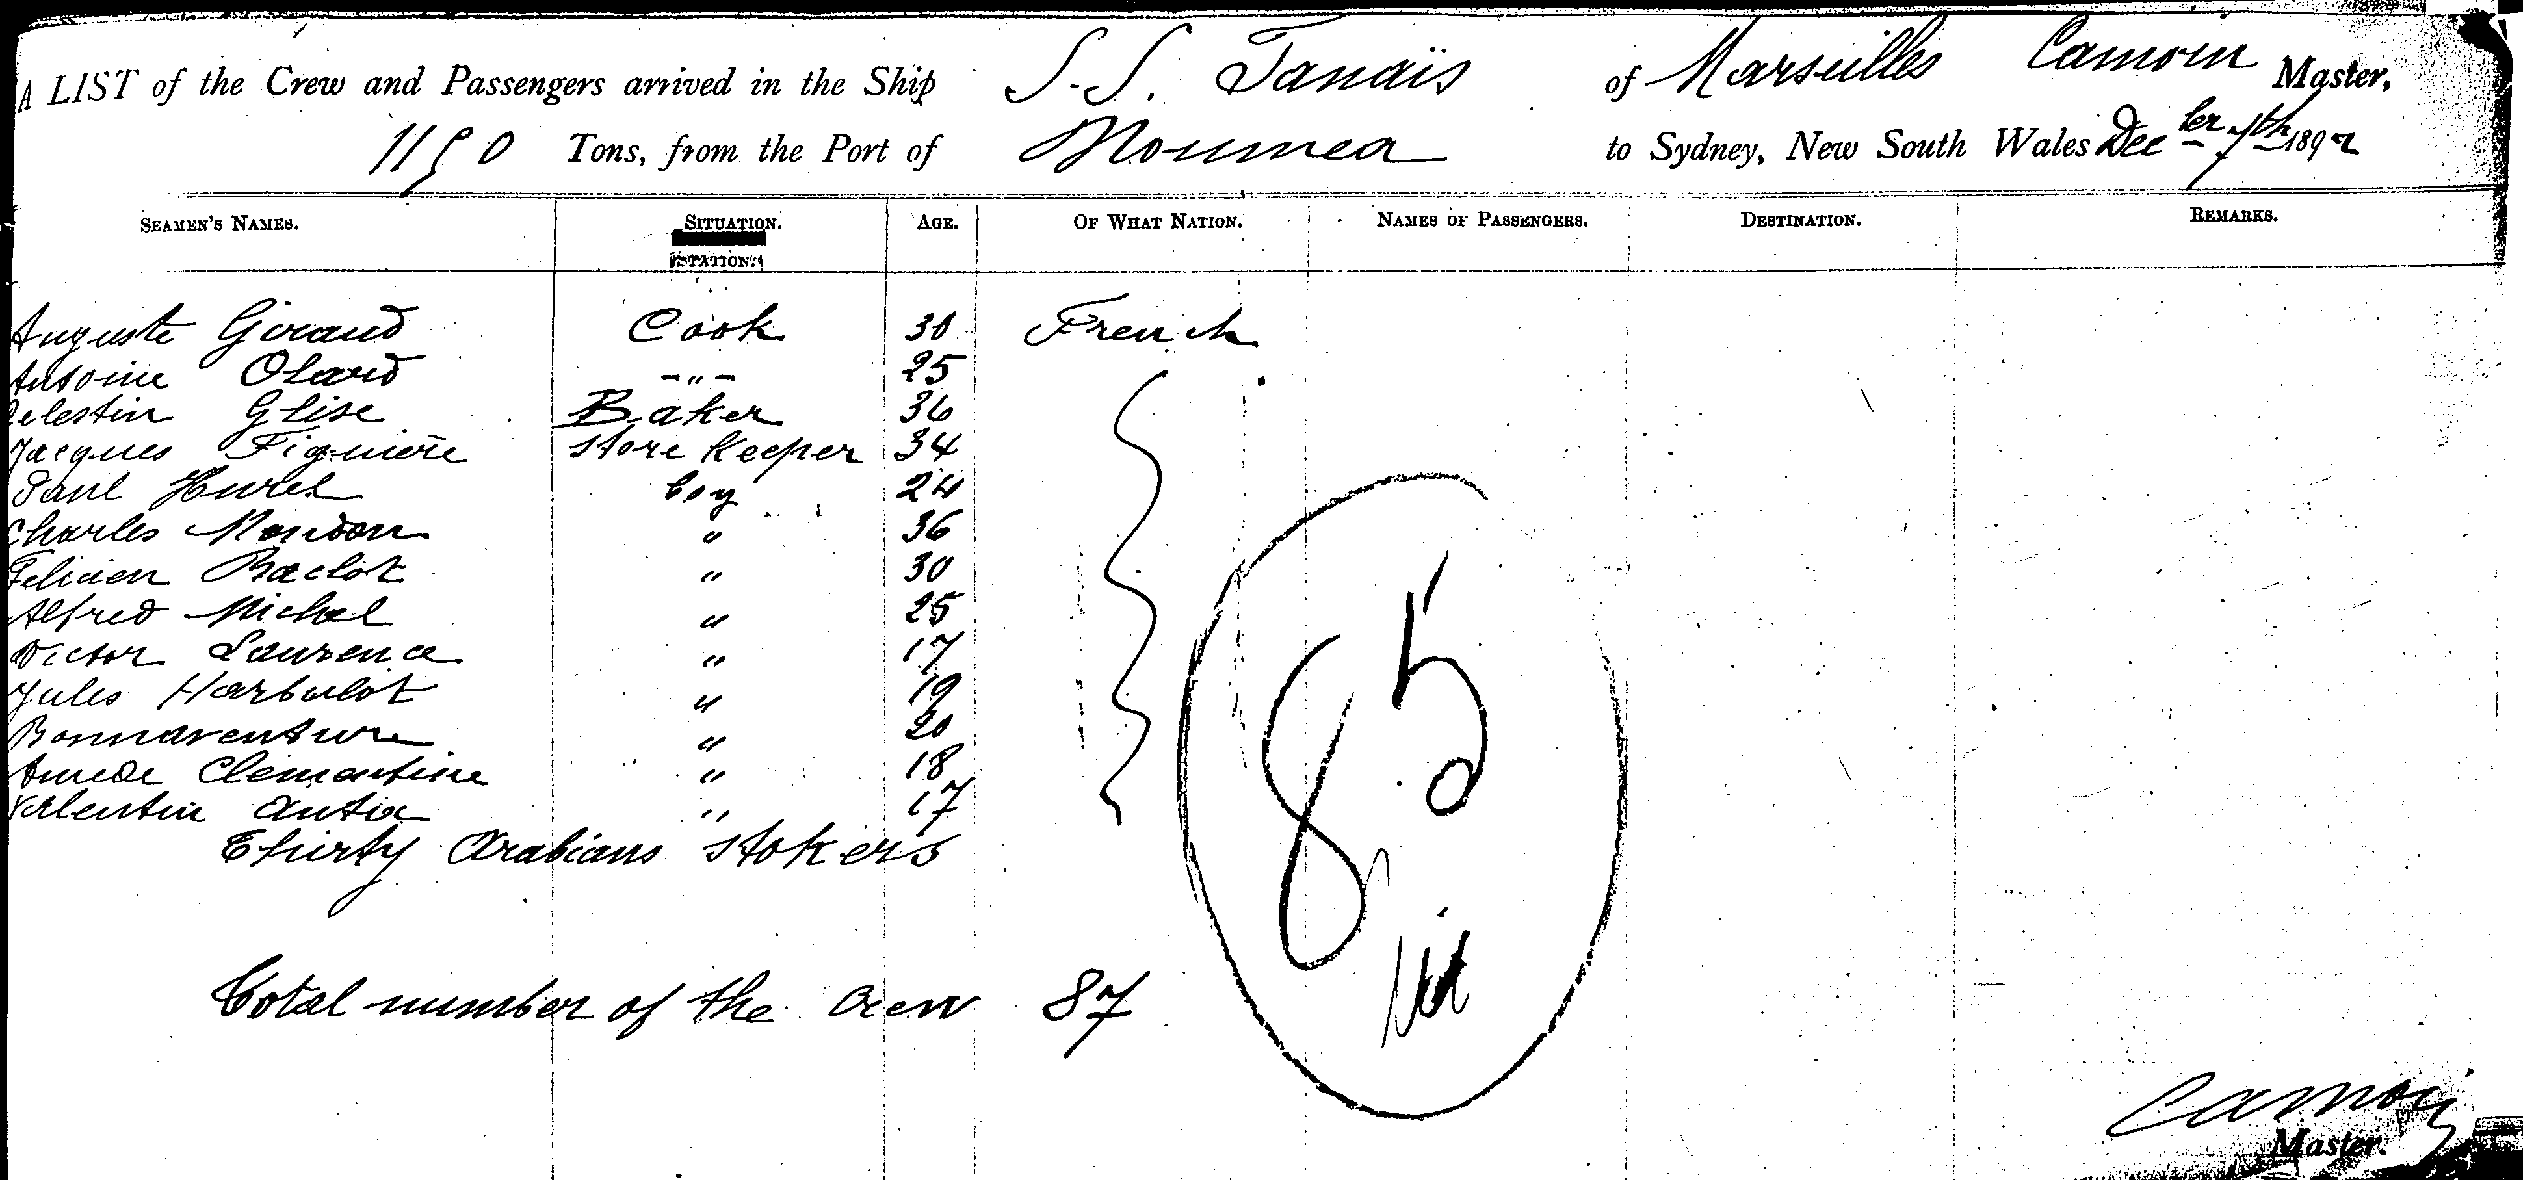 A LIST of the Crew and Passengers arrived in the Ship S.S. Tanaïs of Marseilles Camoin Master,
1190 Tons, from the Port of Noumea to Sydney, New South Wales Decber 7th 1892
SEAMEN'S NAMES. SITUATION. AGE. OF WHAT NATION. NAMES OF PASSENGERS. DESTINATION. REMARKS.
STATION.
Auguste Giraud Cook 30 French
Antoine Olard -"- 25
Celestin Glise Baker 36
Jacques Figuière store Keeper 34
Paul Huret boy 24
Charles Mondon " 36
Felicien Baclot " 30
Alfred Michel " 25
Victor Laurence " 17
Jules Harbulot " 19
Bonnaventure " 20
Amede Clementine " 18
Valentin " 17
Thirty Arabians stokers
85
Total number of the crew 87
Camoin
Master.